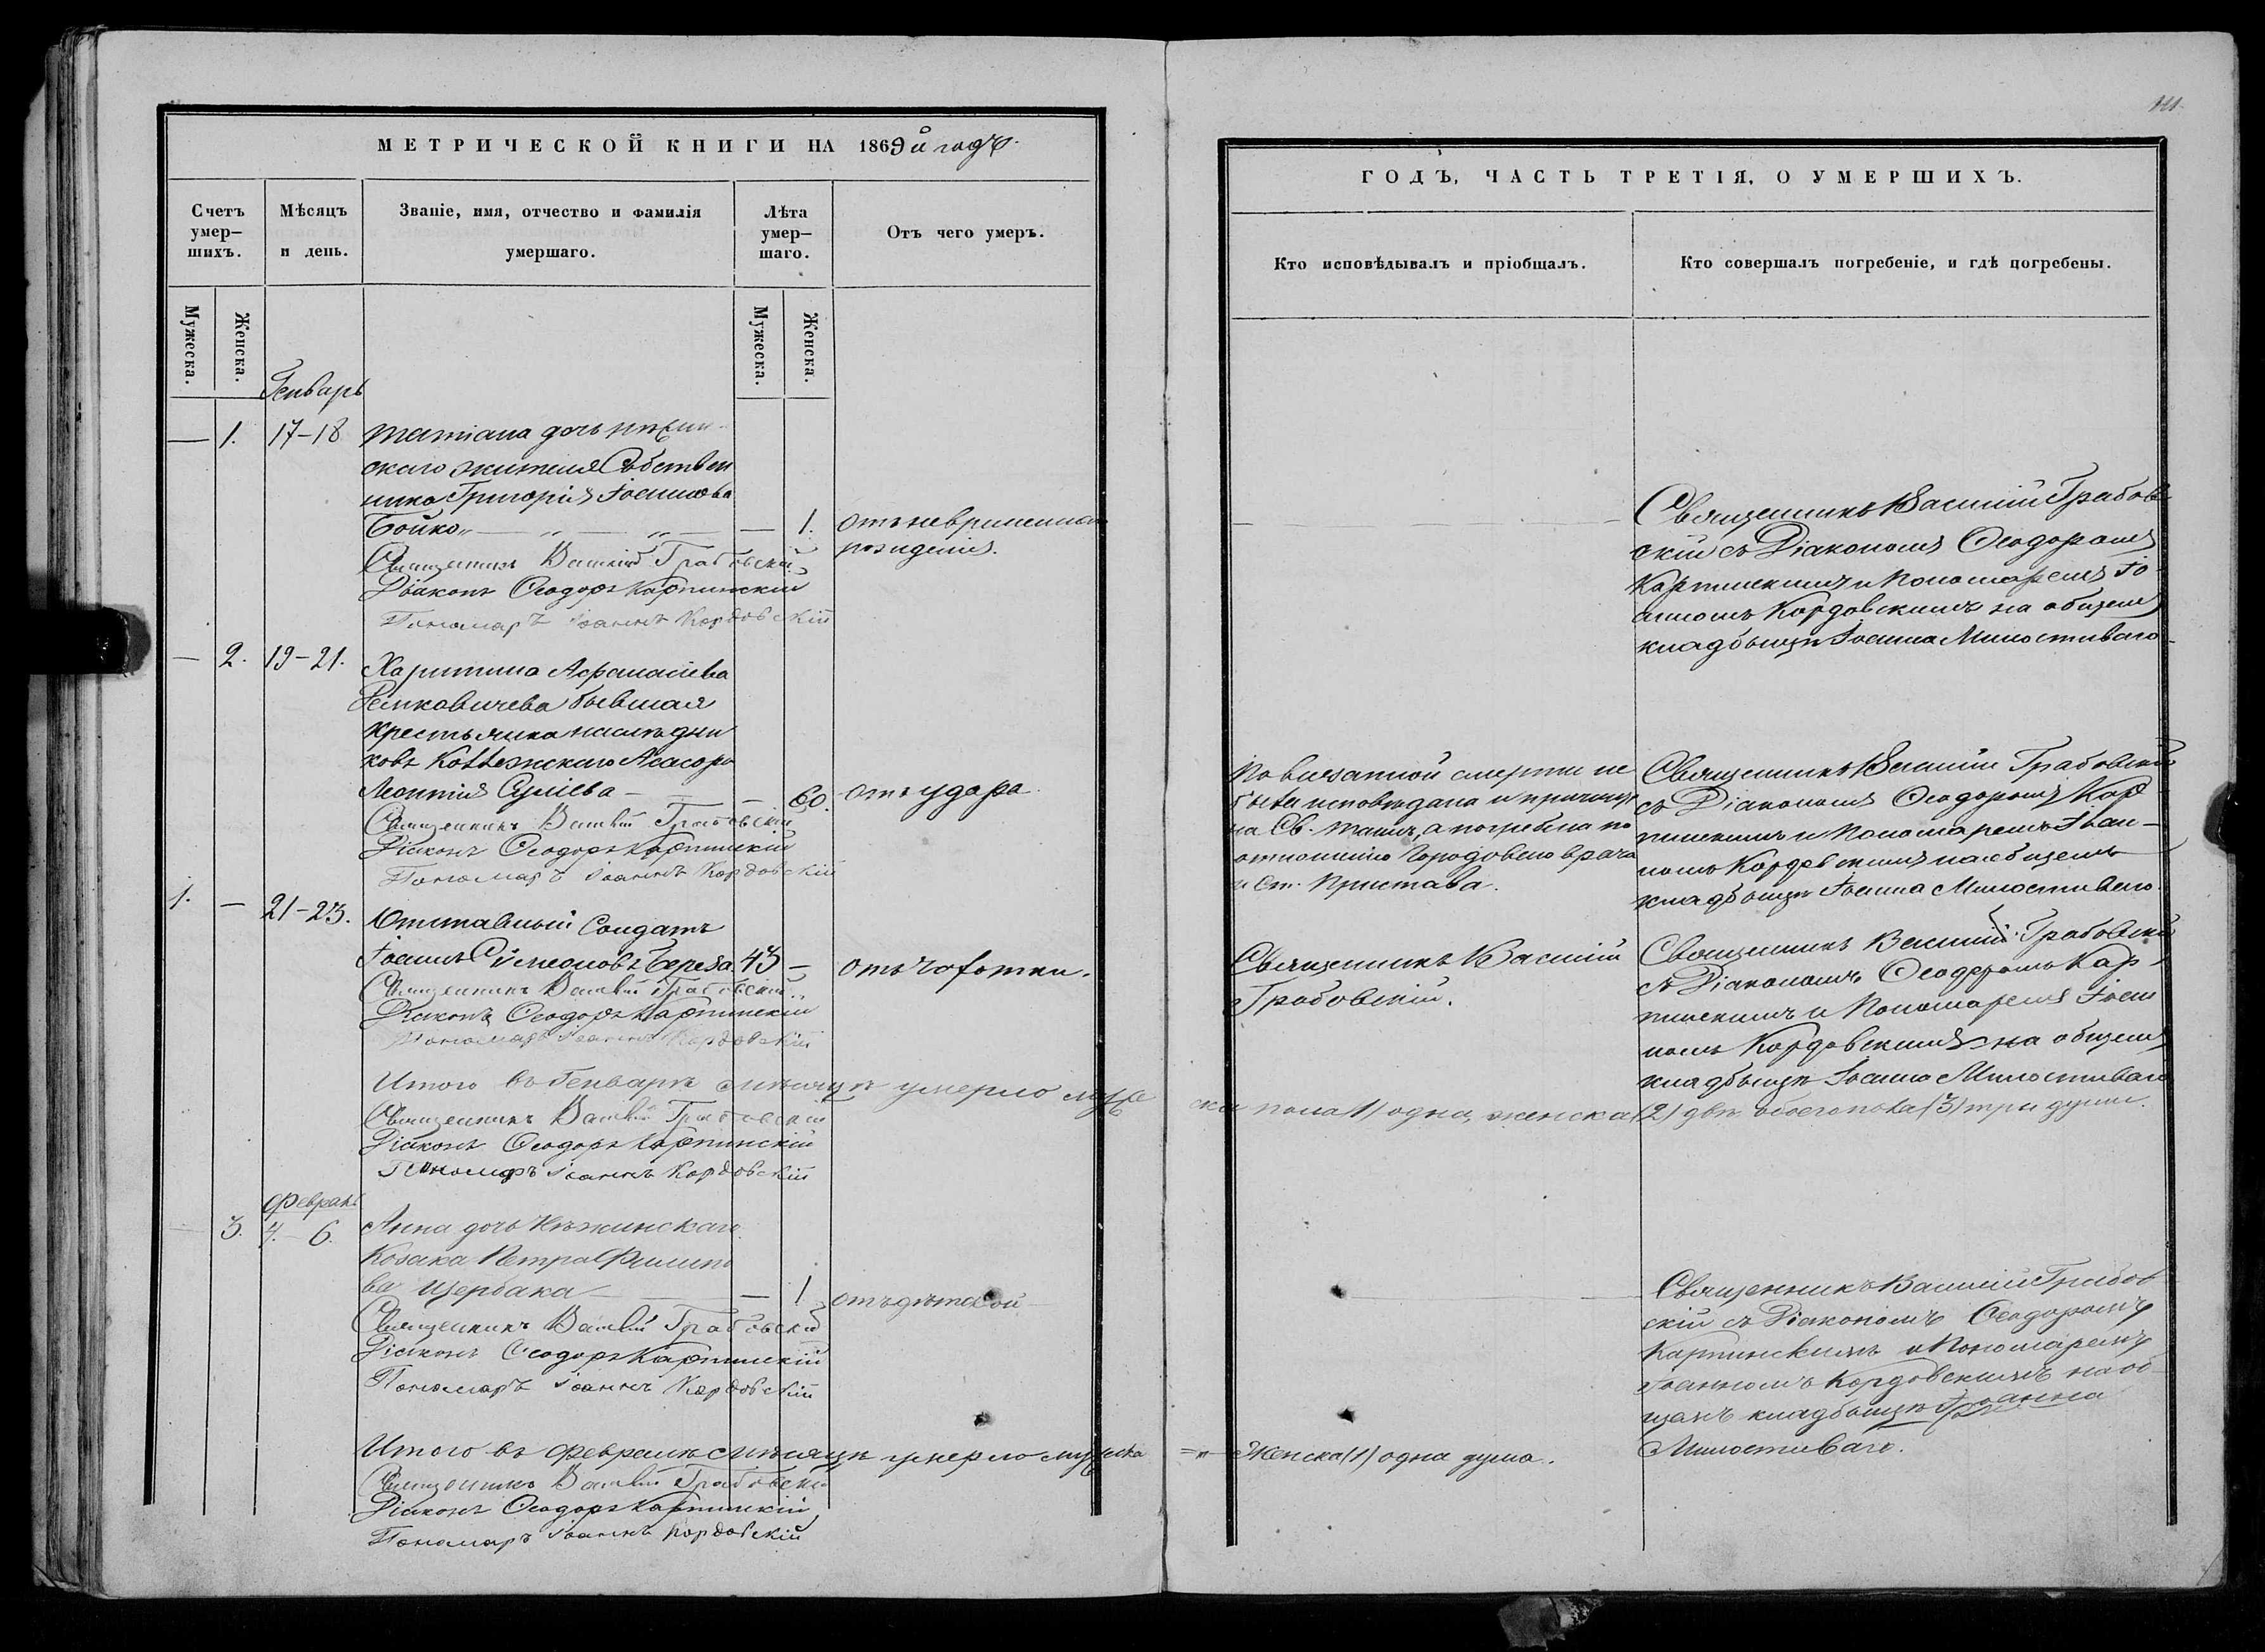 МЕТРИЧЕСКОЙ КНИГИ НА 1869й годъ.
Счетъ умер–шихъ.
Мѣсяцъ и день.
Званіе, имя, отчество и фамилія умершаго.
Лѣта умер–шаго.
Отъ чего умеръ.
Мужеска.
Женска.
Мужеска.
Женска.
Генварь
— 1. 17–18
Татіана дочь нѣжин
скаго жителя Собствен
ника Григорія Іоаннова
Бойко „ — „ — „ — 1.
отъ невременнаго
рожденія.
Священникъ Василій Грабовскій
Діаконъ Ѳеодоръ Карпинскій
Пономарь Іоаннъ Кордовскій
— 2. 19–21.
Харитина Аѳанасіева
бывшая
крестьянка наслѣдни
ковъ Коллежскаго Асесора
Леонтія — — 60.
отъ удара
Священникъ Василій Грабовскій
Діаконъ Ѳеодоръ Карпинскій
Пономарь Іоаннъ Кордовскій
1. — 21–23.
Отставный Солдатъ
Іоаннъ Сѵмеоновъ Береза 43 —
отъ чахотки.
Священникъ Василій Грабовскій
Діаконъ Ѳеодоръ Карпинскій
Пономарь Іоаннъ Кордовскій
Итого въ Генварѣ мѣсяцѣ умерло муже
Священникъ Василій Грабовскій
Діаконъ Ѳеодоръ Карпинскій
Пономарь Іоаннъ Кордовскій
Февраль
— 3. 4.–6.
Анна дочь Нѣжинскаго
Козака Петра Филипо
ва Щербака — — 1
отъ
Священникъ Василій Грабовскій
Діаконъ Ѳеодоръ Карпинскій
Пономарь Іоаннъ Кордовскій
Итого въ Февралѣ мѣсяцѣ умерло мужеска
Священникъ Василій Грабовскій
Діаконъ Ѳеодоръ Карпинскій
Пономарь Іоаннъ Кордовскій
111.
ГОДЪ, ЧАСТЬ ТРЕТІЯ, О УМЕРШИХЪ.
Кто исповѣдывалъ и пріобщалъ.
Кто совершалъ погребеніе, и гдѣ погребены.
Священникъ Василій Грабов
скій съ Діакономъ Ѳеодоромъ
Карпинскимъ и Пономаремъ Іо
анномъ Кордовскимъ на общемъ
кладбыщѣ Іоанна Милостиваго
По внезапной смерти не
была исповѣдана и
на Св. Таинъ, а погребена по
отношенію Городоваго врача
и Ст. Пристава.
Священникъ Василій Грабовскій
съ Діакономъ Ѳеодоромъ Кар
пинскимъ и Пономаремъ Іоан–
номъ Кордовскимъ на общемъ
кладбыщѣ Іоанна Милостиваго
Священникъ Василій
Грабовскій.
Священникъ Василій Грабовскій
съ Діакономъ Ѳеодоромъ Кар
пинскимъ и Пономаремъ Іоан
номъ Кордовскимъ на общемъ
кладбыщѣ Іоанна Милостиваго
ска пола (1) одна, женска (2) двѣ обоего пола (3) три души.
Священникъ Василій Грабов
скій съ Діакономъ Ѳеодоромъ
Карпинскимъ и Пономаремъ
Іоанномъ Кордовскимъ на об
щемъ кладбыщѣ Іоанна
Милостиваго.
женска (1) одна душа.